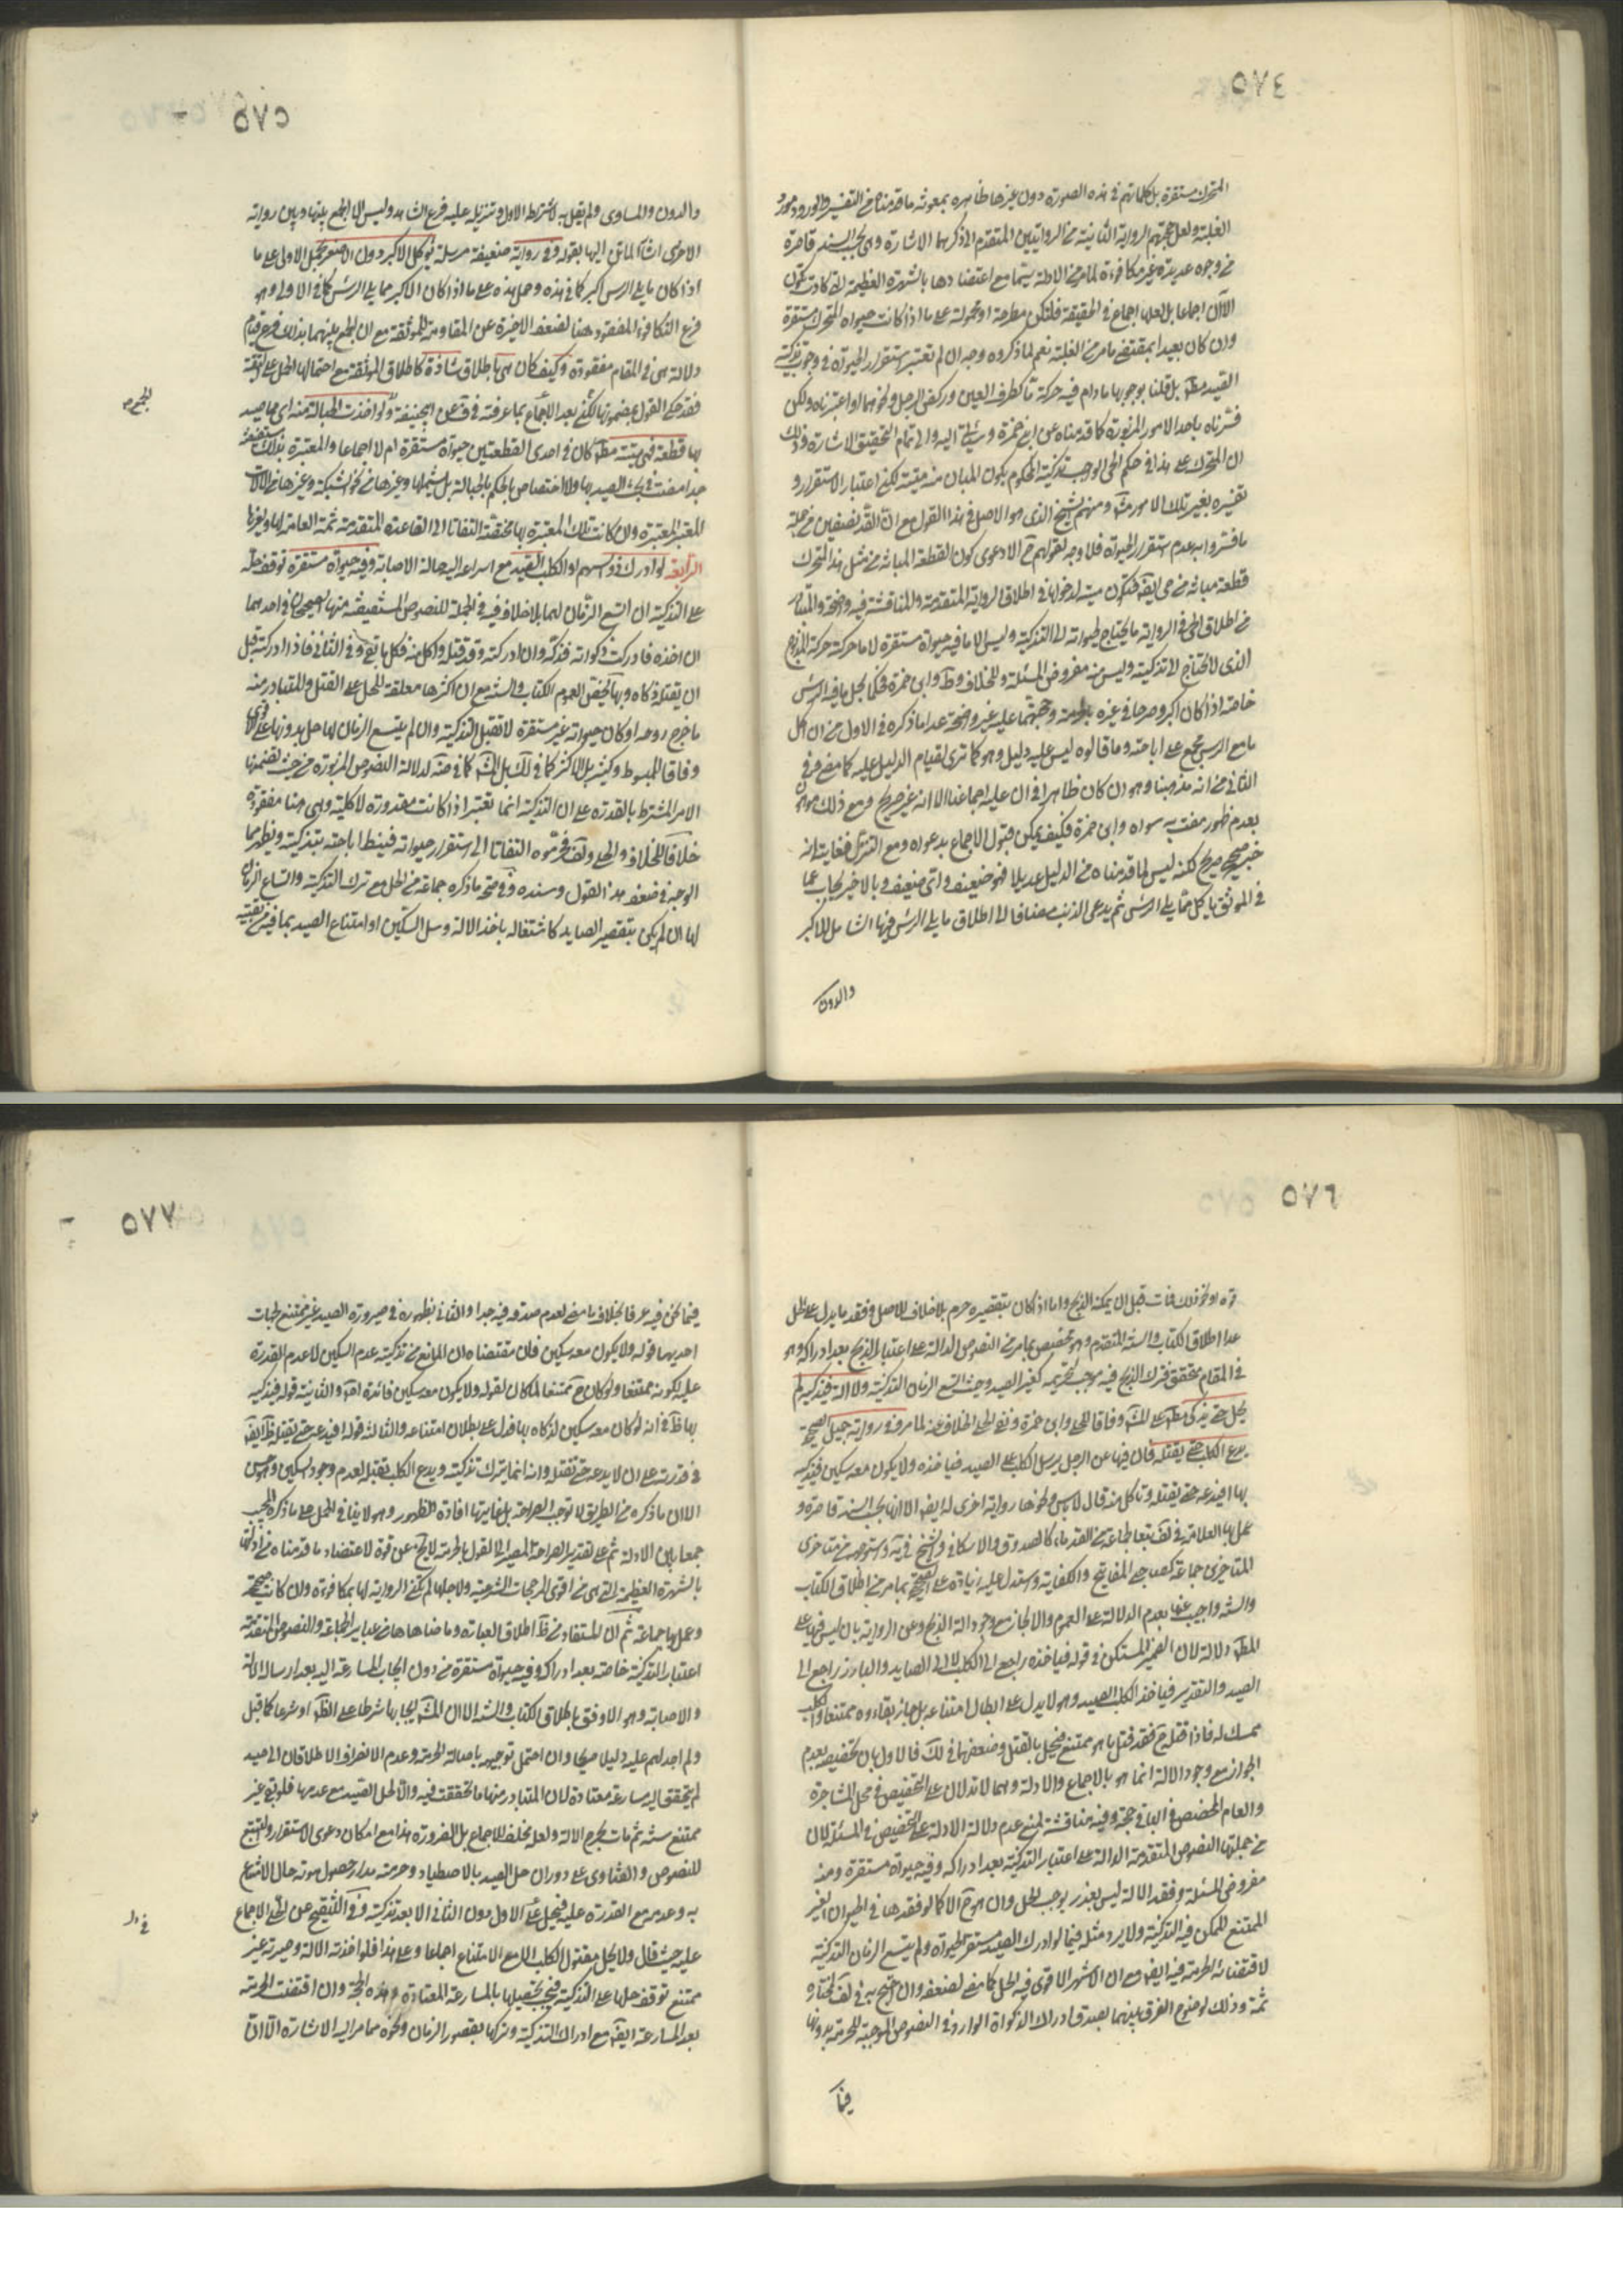 ٥٧٤
المتحرك مستقرة بل كلماتهم في هذه الصورة دون غيرها ظاهرة بمعونة ما قدمناه من التفسير والورود مورد
الغلبة ولعل حجتهم الرواية الثانية من الروايتين المتقدم الى ذكرهما الاشارة وهي بحسب السند قاصرة
من وجوه عديدة غير مكافوءة لما مر من الادلة سيما مع اعتضادها بالشهرة العظيمة التي كادت تكون
الآن اجماعا بل لعلها اجماع في الحقيقة فلتكن مطرحة او محمولة على ما اذا كانت حيوة المتحرك مستقرة
وان كان بعيدا بمقتضى ما مر من الغلبة نعم لما ذكروه وجه ان لم نعتبر استقرار الحيوة في وجوب تذكية
الصيد مطَ بل قلنا بوجوبها ما دام فيه حركة ما كطرف العين وركض الرجل ونحوهما او اعتبرناه ولكن
فسرناه باحد الامور المزبورة كما قدمناه عن ابن حمزة وسيأتي اليه والى تمام التحقيق الاشارة وذلك
ان المتحرك على هذا في حكم الحي الواجب تذكيته المحكوم بكون المبان منه ميتة لكن اعتبار الاستقرار و
تفسيره بغير تلك الامور مشَ ومنهم الشيخ الذي هو الاصل في هذا القول مع ان القد بنصفين من جملة
ما فسروا به عدم استقرار الحيوة فلا وجه لقولهم حَ الا دعوى كون القطعة المبانة من مثل هذا المتحرك
قطعة مبانة من حي ايضَ فتكون ميتة لدخولها في اطلاق الرواية المتقدمة والمناقشة فيه واضحة والمتبادر
من اطلاق الحي في الرواية ما يحتاج لحيوته الى التذكية وليس الا ما فيه حيوة مستقرة لا ما حركته حركة المذبوح
الذي لا يحتاج الى تذكيته وليس منه مفروض المسئلة وللخلاف وطَ وابن حمزة فحكما بحل ما فيه الرئس
خاصة اذا كان اكبر وصرحا في غيره بالحرمة وحجتهما عليه غير واضحة عدا ما ذكره في الاول من ان اكل
ما مع الرئس مجمع على اباحته وما قالوه ليس عليه دليل وهو كما ترى لقيام الدليل عليه كما مضى وفي
الثاني من انه مذهبنا وهو وان كان ظاهرا في ان عليه اجماعنا الا انه غير صريح ومع ذلك موهون
بعدم ظهور مفت به سواه وابن حمزة فكيف يمكن قبول الاجماع بدعواه ومع التنزل فغايته انه
خبر صحيح صريح لكنه ليس لما قدمناه من الدليل عديلا فهو ضعيف واي ضعيف وبالاخير يجاب عما
في الموثق يأكل مما يلي الرئس ثم يدعى الذنب مضافا الى اطلاق ما يلي الرئس فيها الشامل للاكبر
والدون
٥٧٥
والدون والمساوي ولم يقل به لاشتراط الاول وتنزيله عليه فرع الشاهد وليس الا الجمع بينها وبين رواية
الاخرى اشار الماتن اليها بقوله وفي رواية ضعيفة مرسلة يؤكل الاكبر دون الاصغر بحمل الاولى على ما
اذا كان ما يلي الرئس اكبر كما في هذه وحمل هذه على ما اذا كان الاكبر مما يلي الرئس كما في الاولى وهو
فرع التكافوء المفقود هنا لضعف الاخيرة عن المقاومة للموثقة مع ان الجمع بينهما بذلك فرع قيام
دلالة هي في المقام مفقودة وكيف كان هي باطلاق شاذة كاطلاق الموثقة مع احتمالها الحمل على التقية
فقد حكي القول بمضمونها لكن بعد الاجماع بما عرفته في فَ عن ابي حنيفة ولو اخذت الحبالة منه اي مما صيد
بها قطعة فهي ميتة مطَ كان في احدى القطعتين حيوة مستقرة ام لا اجماعا والمعتبرة بذلك مستفيضة
جدا مضت في بحث الصيد بها ولا اختصاص بالحكم بالحبالة بل يشملها وغيرها من نحو الشبكة وغيرها من الآلات
للمعتبر المعتبرة وان كانت تلك المعتبرة بها مختصة التفاتا الى القاعدة المتقدمة ثمة العامة لها ولغيرها
الرابعة لو ادرك ذو السهم او الكلب الصيد مع اسراعه اليه حالة الاصابة وفيه حيوة مستقرة توقف حله
على التذكية ان اتسع الزمان لها بلا خلاف فيه في الجملة للنصوص المستفيضة منها الصحيحان في احدهما
ان اخذه فادركت ذكوته فذكه وان ادركته وقد قتله واكل منه فكل ما بقي وفي الثاني فاذا ادركته قبل
ان يقتله ذكاه وبها يخص العموم الكتاب والسنة مع ان اكثرها معلقة للحل على القتل والمتبادر منه
ما خرج روحه او كان حيوته غير مستقرة لا تقبل التذكية وان لم يتسع الزمان لها حل بدونها على الاقوى
وفاقا للمبسوط وكثير بل الاكثر كما في لَك بل المشَ كما في ضَه لدلالة النصوص المزبورة من حيث تضمنها
الامر المشترط بالقدرة على ان التذكية انما تعتبر اذا كانت مقدورة لا كلية وهي هنا مفقودة
خلافا للخلاف والحلي ولَف فحرّموه التفاتا الى استقرار حيوته فينط اباحته بتذكيته ونظر مما
الوجه في ضعف هذا القول وسنده وفي صحة ما ذكره جماعة من الحل مع ترك التذكية واتساع الزمان
لها ان لم يكن بتقصير الصايد كاشتغاله باخذ الالة وسل السكين او امتناع الصيد بما فيه من بقية
٥٧٦
قوة او نحو ذلك فمات قبل ان يمكنه الذبح واما اذا كان بتقصيره حرم بلا خلاف للاصل وفقد ما يدل على الحل
عدا اطلاق الكتاب والسنة المتقدم وهو مخصص بما مر من النصوص الدالة على اعتبار الذبح بعد ادراكه وهو
في المقام متحقق فترك الذبح فيه موجب لتحريمه كغير الصيد وحيث اتسع الزمان للتذكية ولا الة فيذكيه لم
يحل حتى يذكى مطَ على المشَ وفاقا للحلي وابن حمزة ونفى الحلي الخلاف عنه لما مر وفي رواية جميل الصحيحة
يدع الكلب حتى يقتله قال فيها عن الرجل يرسل الكلب على الصيد فياخذه ولا يكون معه سكين فيذكيه
بها افيدعه حتى يقتله وتاكل منه قال لا بئس ونحوها رواية اخرى له ايضَ الا انها بحسب السند قاصرة و
عمل بها العلامة في لَف تبعا لجماعة من القدماء كالصدوق والاسكافي والشيخ في يَه واستوجهه من متاخري
المتاخرين جماعة كصاحبي المفاتيح والكفاية واستدل عليه زيادة على الصحيح بما مر من اطلاق الكتاب
والسنة واجيب عنها بعدم الدلالة على العموم والا لجاز مع وجود الة الذبح وعن الرواية بان ليس فيها على
المطَ دلالة لان الضمير المستكن في قوله فياخذه راجع الى الكلب لا الى الصايد والبارز راجع الى
الصيد والتقدير فياخذ الكلب الصيد وهو لا يدل على ابطال امتناعه بل جاز بقاءوه ممتنعا والكلب
ممسك له فاذا قتله حَ فقد قتل ما هو ممتنع فيحل بالقتل وضعفهما في لَك فالاول بان تخصيصه بعدم
الجواز مع وجود الالة انما هو بالاجماع والادلة وهما لا تدلان على التخصيص في محل المشاجرة
والعام المخصص في الباقي حجة وفيه مناقشة لمنع عدم دلالة الادلة على التخصيص في المسئلة لان
من جملتها النصوص المتقدمة الدالة على اعتبار التذكية بعد ادراكه وفيه حيوة مستقرة ومنه
مفروض المسئلة وفقد الالة ليس بعذر يوجب الحل وان هو حَ الا كما لو فقدها في الحيوان الغير
الممتنع الممكن فيه التذكية ولا يرد مثله فيما لو ادرك الصيد مستقر الحيوة ولم يتسع الزمان التذكية
لاقتضائه الحرمة فيه ايضَ مع ان الاشهر الاقوى فيه الحل كما مضى لضعفه وان احتج به في لَف لمختاره
ثمة وذلك لوضوح الفرق بينهما بصدق ادراك الذكوة الوارد في النصوص الموجبة للحرمة بدونها
فيما
٥٧٧
فيما نحن فيه عرفا بخلاف ما مضى لعدم صدقه فيه جدا والثاني بظهوره في صيرورة الصيد غير ممتنع لجهات
احديهما قوله ولا يكون معه سكين فان مقتضاه ان المانع من تذكيته عدم السكين لا عدم القدرة
عليه لكونه ممتنعا ولو كان حَ ممتنعا لما كان لقوله ولا يكون معه سكين فائدة اصَ والثانية قوله فيذكيه
بها ظَ في انه لو كان معه سكين لذكاه بها فدل على بطلان امتناعه والثالثة قوله افيدعه حتى يقتله ظَ ايضَ
في قدرته على ان لا يدعه حتى تقتله وانه انما يترك تذكيته ويدع الكلب يقتله لعدم وجود السكين وهو حسن
الا ان ما ذكره من الطريق لا توجب الصراحة بل غايتها افادة الظهور وهو لا ينافي الحمل على ما ذكره المجيب
جمعا بين الادلة ثم على تقدير الصراحة المصير الى القول بالحرمة لا يخَ عن قوة لاعتضاد ما قدمناه من ادلتها
بالشهرة العظيمة التي هي من اقوى المرجحات الشرعية ولاجلها لم تكن الرواية لها بمكافوءة وان كانت صحيحة
وعمل بها جماعة ثم ان المستفاد من ظَ اطلاق العبارة وما ضاهاها من عباير الجماعة والنصوص المتقدمة
اعتبار التذكية خاصة بعد ادراكه وفيه حيوة مستقرة من دون ايجاب المسارعة اليه بعد ارسال الالة
والاصابة وهو الاوفق باطلاق الكتاب والسنة الا ان المشَ ايجابها شرطا على الظَ او شرعا كما قيل
ولم اجد لهم عليه دليلا صريحا وان احتمل توجيهه باصالة الحرمة وعدم الانصراف الاطلاقات الى صيد
لم يتحقق اليه مسارعة معتادة لان المتبادر منها ما تحققت فيه والا لحل الصيد مع عدمها فلو بقي غير
ممتنع سنة ثم مات بجرح الالة ولعله مخالف للاجماع بل الضرورة هذا مع امكان دعوى الاستقراء والتتبع
للنصوص والفتاوى على دوران حل الصيد بالاصطياد وحرمته مدار حصول موته حال الامتناع
به وعدمه مع القدرة عليه فيحل على الاول دون الثاني الا بعد تذكيته وفي التنقيح عن الحلي الاجماع
عليه حيث قال ولا يحل مقتول الكلب الا مع الامتناع اجماعا وعلى هذا فلو اخذته الالة وصيرته غير
ممتنع توقف حلها على التذكية فيجب تحصيلها بالمسارعة المعتادة وهذه الحجة وان اقتضت الحرمة
بعد المسارعة ايضَ مع ادراك التذكية وتركها بقصور الزمان ونحوه مما مر اليه الاشارة الا ان